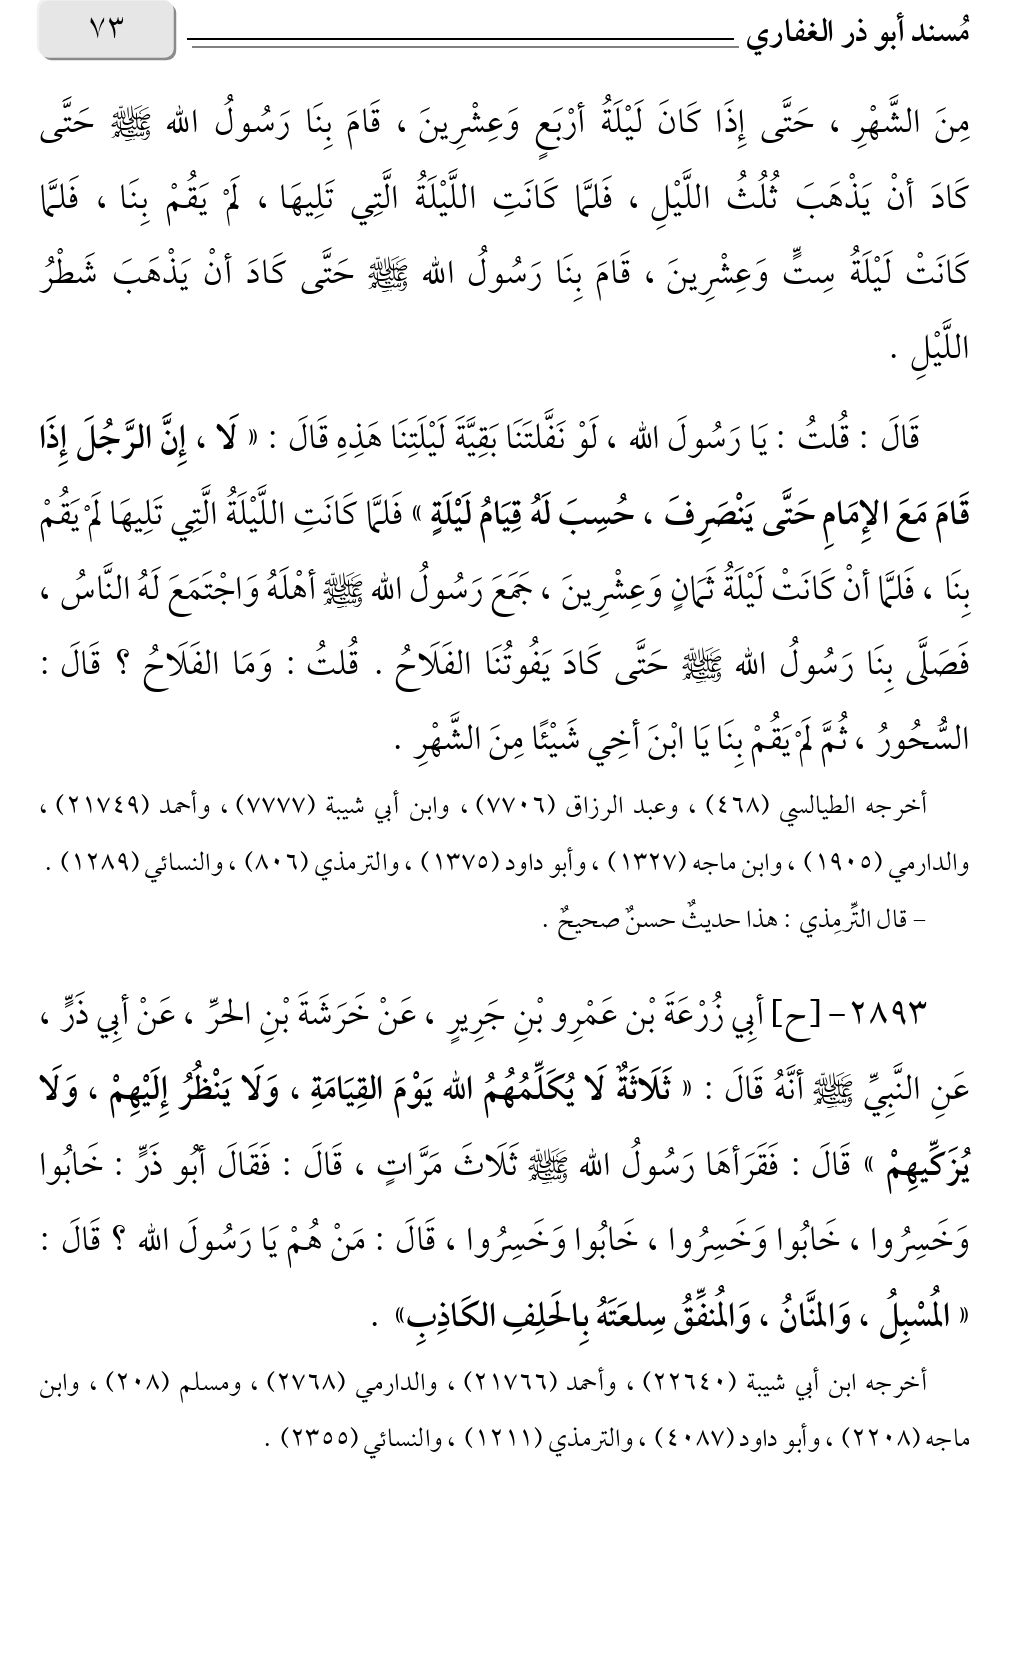 مُسند أبو ذر الغفاري ٧٣
مِنَ الشَّهْرِ ، حَتَّى إِذَا كَانَ لَيْلَةُ أرْبَعٍ وَعِشْرِينَ ، قَامَ بِنَا رَسُولُ الله ﷺ حَتَّى
كَادَ أنْ يَذْهَبَ ثُلُثُ اللَّيْلِ ، فَلمَّا كَانَتِ اللَّيْلَةُ الَّتِي تَلِيهَا ، لَمْ يَقُمْ بِنَا ، فَلمَّا
كَانَتْ لَيْلَةُ سِتٍّ وَعِشْرِينَ ، قَامَ بِنَا رَسُولُ الله ﷺ حَتَّى كَادَ أنْ يَذْهَبَ شَطْرُ
اللَّيْلِ .
قَالَ : قُلتُ : يَا رَسُولَ الله ، لَوْ نَفَّلتَنَا بَقِيَّةَ لَيْلَتِنَا هَذِهِ قَالَ : « لَا ، إِنَّ الرَّجُلَ إِذَا
قَامَ مَعَ الإِمَامِ حَتَّى يَنْصَرِفَ ، حُسِبَ لَهُ قِيَامُ لَيْلَةٍ » فَلمَّا كَانَتِ اللَّيْلَةُ الَّتِي تَلِيهَا لَمْ يَقُمْ
بِنَا ، فَلمَّا أنْ كَانَتْ لَيْلَةُ ثَمَانٍ وَعِشْرِينَ ، جَمَعَ رَسُولُ الله ﷺ أهْلَهُ وَاجْتَمَعَ لَهُ النَّاسُ ،
فَصَلَّى بِنَا رَسُولُ الله ﷺ حَتَّى كَادَ يَفُوتُنَا الفَلَاحُ . قُلتُ : وَمَا الفَلَاحُ ؟ قَالَ :
السُّحُورُ ، ثُمَّ لَمْ يَقُمْ بِنَا يَا ابْنَ أخِي شَيْئًا مِنَ الشَّهْرِ .
أخرجه الطيالسي (٤٦٨) ، وعبد الرزاق (٧٧٠٦) ، وابن أبي شيبة (٧٧٧٧) ، وأحمد (٢١٧٤٩) ،
والدارمي (١٩٠٥) ، وابن ماجه (١٣٢٧) ، وأبو داود (١٣٧٥) ، والترمذي (٨٠٦) ، والنسائي (١٢٨٩) .
– قال التِّرمِذي : هذا حديثٌ حسنٌ صحيحٌ .
٢٨٩٣- [ح] أبِي زُرْعَةَ بْن عَمْرِو بْنِ جَرِيرٍ ، عَنْ خَرَشَةَ بْنِ الحرِّ ، عَنْ أبِي ذَرٍّ ،
عَنِ النَّبِيِّ ﷺ أنَّهُ قَالَ : « ثَلَاثَةٌ لَا يُكَلِّمُهُمُ الله يَوْمَ القِيَامَةِ ، وَلَا يَنْظُرُ إِلَيْهِمْ ، وَلَا
يُزَكِّيهِمْ » قَالَ : فَقَرَأهَا رَسُولُ الله ﷺ ثَلَاثَ مَرَّاتٍ ، قَالَ : فَقَالَ أبُو ذَرٍّ : خَابُوا
وَخَسِرُوا ، خَابُوا وَخَسِرُوا ، خَابُوا وَخَسِرُوا ، قَالَ : مَنْ هُمْ يَا رَسُولَ الله ؟ قَالَ :
« المُسْبِلُ ، وَالمنَّانُ ، وَالمُنفِّقُ سِلعَتَهُ بِالحَلِفِ الكَاذِبِ» .
أخرجه ابن أبي شيبة (٢٢٦٤٠) ، وأحمد (٢١٧٦٦) ، والدارمي (٢٧٦٨) ، ومسلم (٢٠٨) ، وابن
ماجه (٢٢٠٨) ، وأبو داود (٤٠٨٧) ، والترمذي (١٢١١) ، والنسائي (٢٣٥٥) .